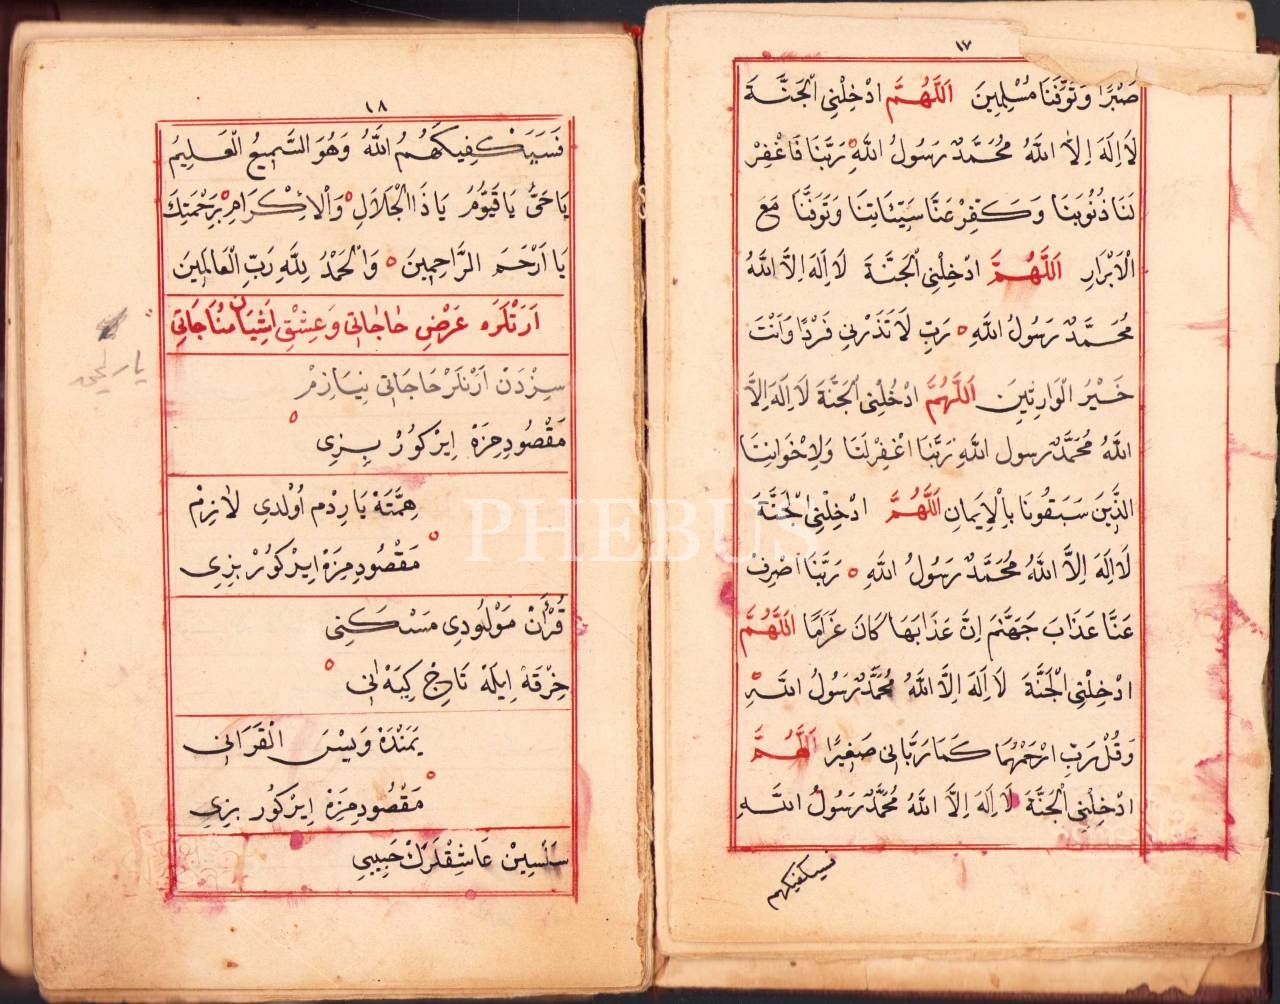 ١٧
صَبْرًا وَتَوَفَّنَا مُسْلِمِينَ اَللّٰهُمَّ ادْخِلْنِى الْجَنَّةَ
لَا اِلٰهَ اِلَّا اللّٰهُ مُحَمَّدٌ رَسُولُ اللّٰهِ رَبَّنَا فَاغْفِرْ
لَنَا ذُنُوبَنَا وَكَفِّرْ عَنَّا سَيِّئَاتِنَا وَتَوَفَّنَا مَعَ
الْاَبْرَارِ اَللّٰهُمَّ ادْخِلْنِى الْجَنَّةَ لَا اِلٰهَ اِلَّا اللّٰهُ
مُحَمَّدٌ رَسُولُ اللّٰهِ رَبِّ لَا تَذَرْنِى فَرْدًا وَاَنْتَ
خَيْرُ الْوَارِثِينَ اَللّٰهُمَّ ادْخُلْنِى الْجَنَّةَ لَا اِلٰهَ اِلَّا
اللّٰهُ مُحَمَّدٌ رسول اللّٰهِ رَبَّنَا اغْفِرْلَنَا وَلِاِخْوَانِنَا
الَّذِينَ سَبَقُونَا بِالْاِيمَانِ اَللّٰهُمَّ ادْخِلْنِى الْجَنَّةَ
لَا اِلٰهَ اِلَّا اللّٰهُ مُحَمَّدٌ رَسُولُ اللّٰهِ رَبَّنَا اصْرِف
عَنَّا عَذَابَ جَهَنَّمَ اِنَّ عَذَابَهَا كَانَ غَرَامًا اَللّٰهُمَّ
ادْخِلْنِى الْجَنَّةَ لَا اِلٰهَ اِلَّا اللّٰهُ مُحَمَّدٌ رَسُولُ اللّٰهِ
وَقُلْ رَبِّ ارْحَمْهُمَا كَمَا رَبَّيَانِى صَغِيرًا اَللّٰهُمَّ
ادْخِلْنِى الْجَنَّةَ لَا اِلٰهَ اِلَّا اللّٰهُ مُحَمَّدٌ رَسُولُ اللّٰهِ
فسيكفيكهم
١٨
فَسَيَكْفِيكَهُمُ اللّٰهُ وَهُوَ السَّمِيعُ الْعَلِيمُ
يَا حَىُّ يَا قَيُّومُ يَا ذَا الْجَلَالِ وَالْاِكْرَامِ بِرَحْمَتِكَ
يَا اَرْحَمَ الرَّاحِمِينَ وَالْحَمْدُ لِلّٰهِ رَبِّ الْعَالَمِينَ
اَرَنْلَرَه عَرْضِ حَاجَاتِى وَعِشْقِ اَشِيَان مُنَاجَاتِى
سِزْدَنْ اَرَنْلَرْ حَاجَاتِى نِيَازِمْ
مَقْصُودِمِزَهْ اِيرْكُورْ بِزِى
هِمَّتَهْ يَارِدْم اُولْدِى لَازِمْ
مَقْصُودِمِزَهْ اِيرْكُورْ بِزِى
قُرْاٰنْ مَوْلُودِى مَسْكَنِى
خِرْقَهْ اِيلَهْ تَاجْ كِيَهْ نِى
يَمَنْدَهْ وَيْسَ الْقَرَانِى
مَقْصُودِمِزَهْ اِيرْكُورْ بِزِى
سَنْسِينْ عَاشِقْلَرَكْ حَبِيبِى
PHEBUS